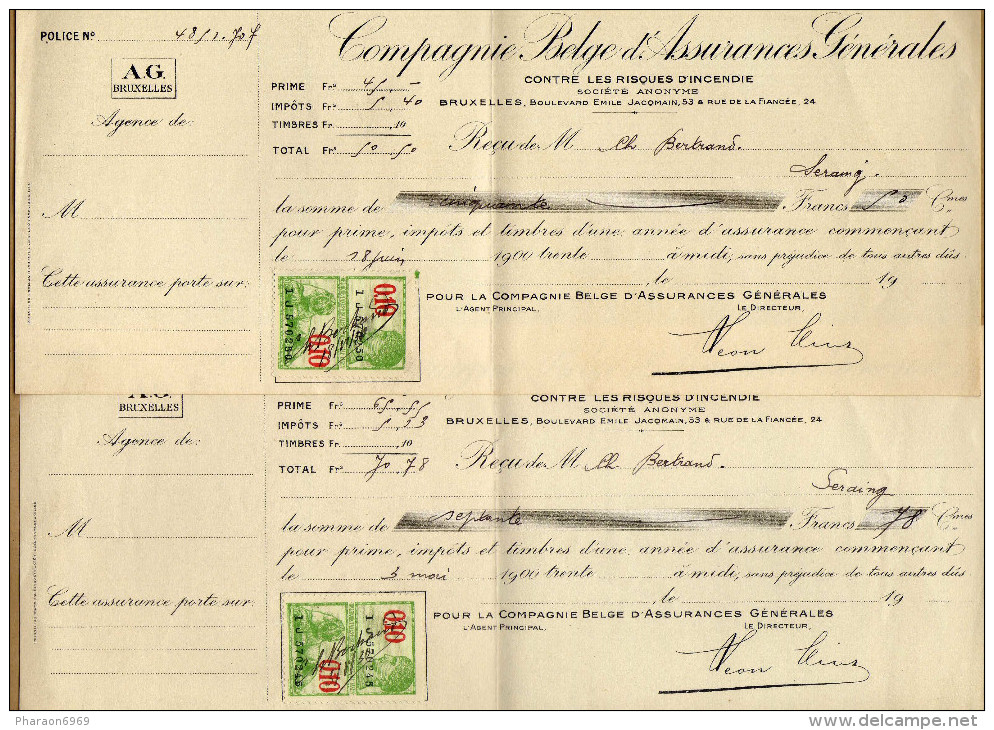 POLICE Nº 48/1.707
Compagnie Belge d'Assurances Générales
A.G.
BRUXELLES
CONTRE LES RISQUES D'INCENDIE
SOCIÉTÉ ANONYME
BRUXELLES, BOULEVARD EMILE JACQMAIN, 53 & RUE DE LA FIANCÉE, 24
PRIME Frs 45 -
IMPÔTS Frs 5,40
TIMBRES Fr. ,10
TOTAL Frs 50 50
Agence de:
Reçu de M Ch Bertrand.
Seraing.
M
la somme de cinquante Francs 50 Cmes
pour prime, impôts et timbres d'une année d'assurance commençant
le 18 juin 1900 trente à midi, sans préjudice de tous autres dûs.
Cette assurance porte sur:
le 19
POUR LA COMPAGNIE BELGE D'ASSURANCES GÉNÉRALES
L'AGENT PRINCIPAL, LE DIRECTEUR,
0.10
0.10
A.G.
BRUXELLES
CONTRE LES RISQUES D'INCENDIE
SOCIÉTÉ ANONYME
BRUXELLES, BOULEVARD EMILE JACQMAIN, 53 & RUE DE LA FIANCÉE, 24
PRIME Frs 65.55
IMPÔTS Frs 5 23
TIMBRES Fr. ,10
TOTAL Frs 70 78
Agence de:
Reçu de M Ch Bertrand.
Seraing
M
la somme de septante Francs 78 Cmes
pour prime, impôts et timbres d'une année d'assurance commençant
le 3 mai 1900 trente à midi, sans préjudice de tous autres dûs
Cette assurance porte sur:
le 19
POUR LA COMPAGNIE BELGE D'ASSURANCES GÉNÉRALES
L'AGENT PRINCIPAL, LE DIRECTEUR,
0.10
0.10
Pharaon6969
delcampe.net